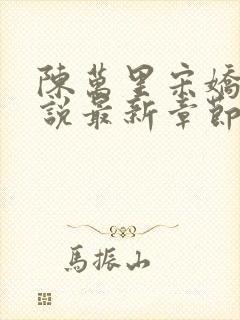 陳萬里宋嬌
說最新章節
馬振山